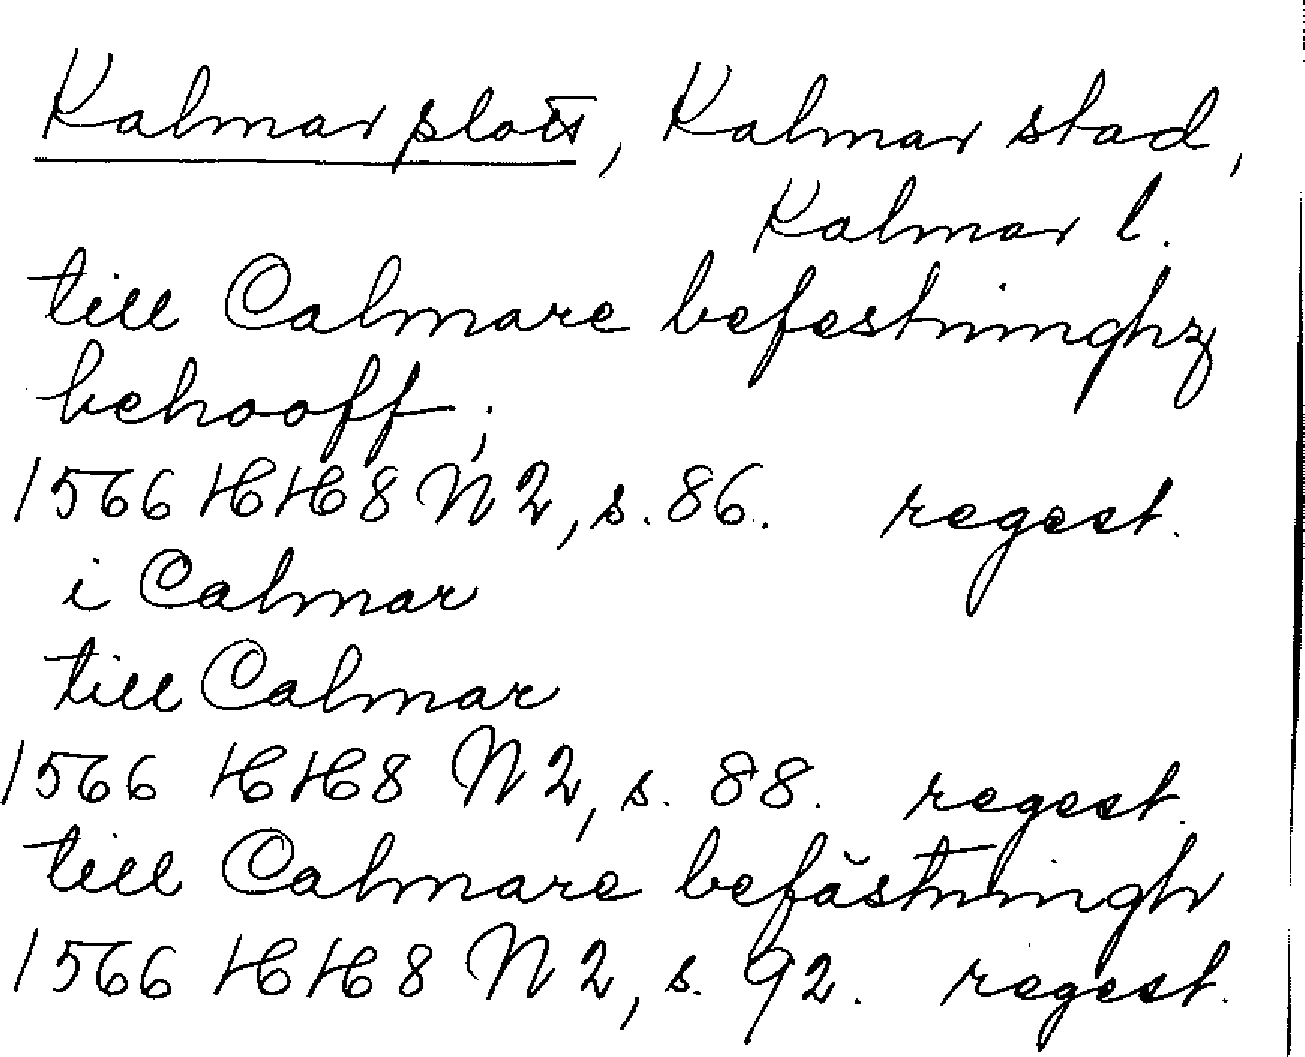 Kalmar slott, Kalmar stad,
Kalmar l.
till Calmare befestninghz
behooff;
1566 HH8 N 2, s. 86. regest.
i Calmar
till Calmar
1566 HH8 N 2, s. 88. regest.
till Calmare befästningh
1566 HH8 N 2, s. 92. regest.